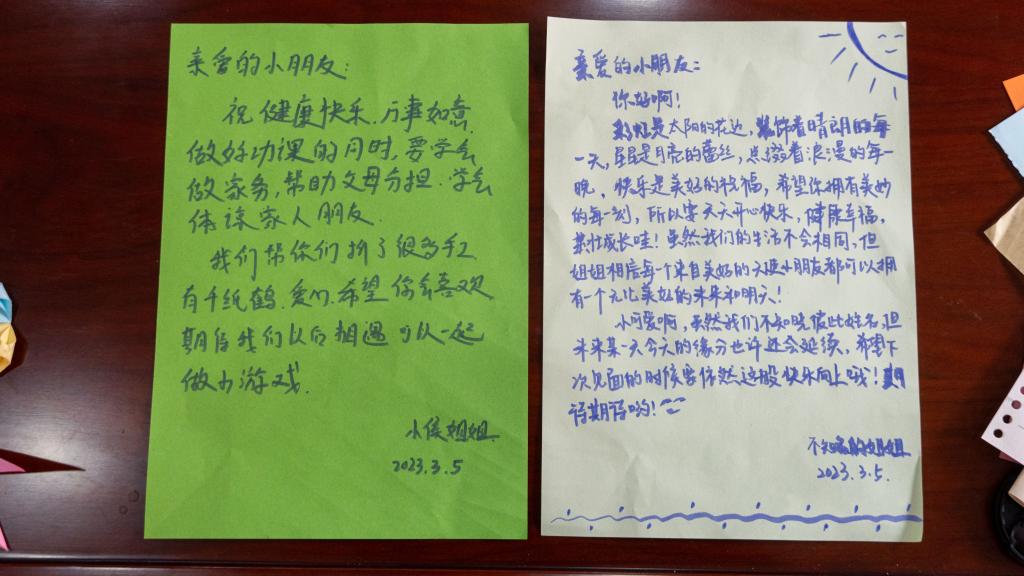 亲爱的小朋友:
祝健康快乐.万事如意.
做好功课的同时,要学会
做家务,帮助父母分担.学会
体谅家人朋友.
我们帮你们折了很多手工
有千纸鹤.爱心.希望你会喜欢
期待我们以后相遇可以一起
做小游戏.
小侯姐姐
2023.3.5
亲爱的小朋友:
你好啊!
是太阳的花边,装饰着晴朗的每
一天,星星是月亮的蕾丝,点缀着浪漫的每一
晚,快乐是美好的祝福,希望你拥有美妙
的每一刻,所以要天天开心快乐,健康幸福,
茁壮成长哇!虽然我们的生活不会相同,但
姐姐相信每个来自美好的天使小朋友都可以拥
有一个无比美好的未来和明天!
小可爱啊,虽然我们不知晓彼此姓名,但
未来某一天今天的缘分也许还会延续,希望下
次见面的时候要依然这般快乐向上哦!期
待期待哟!
不知名的姐姐
2023.3.5.